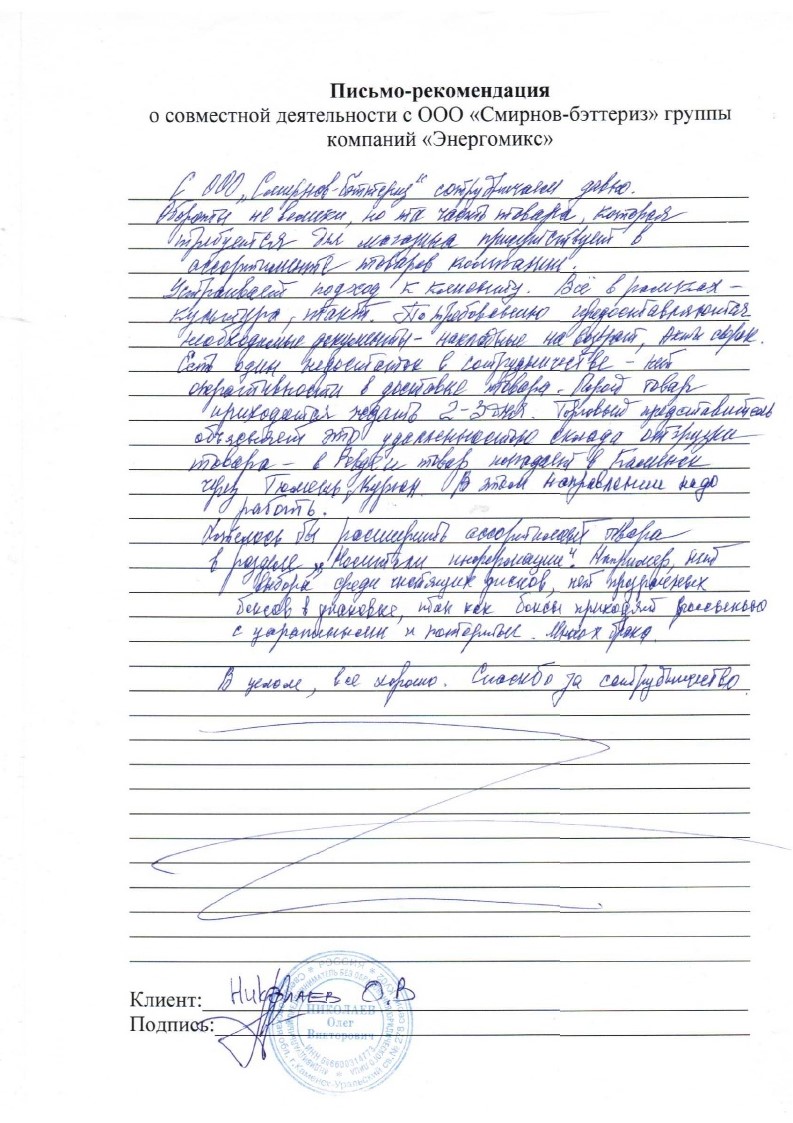 Письмо-рекомендация
о совместной деятельности с ООО «Смирнов-бэттериз» группы
компаний «Энергомикс»
С ООО „Смирнов-бэттериз“ сотрудничаем давно.
Обороты не велики, но та часть товара, которая
требуется для магазина присутствует в
ассортименте товаров компании.
Устраивает подход к клиенту. Всё в рамках –
культура, такт. По требованию предоставляются
необходимые документы – накладные на возврат, Акты сверок.
Есть один недостаток в сотрудничестве – нет
оперативности в доставке товара. Порой товар
приходится ждать 2-3 дня. Торговый представитель
объясняет это удаленностью склада отгрузки
товара – в Ревде и товар попадает в Каменск
через Тюмень, Курган. В этом направлении надо
работать.
Хотелось бы расширить ассортимент товара
в разделе „Носители информации“. Например, нет
выбора среди чистящих дисков, нет прозрачных
боксов в упаковке, так как боксы приходят россыпью
с царапинами и потертые. Много брака.
В целом, все хорошо. Спасибо за сотрудничество.
Клиент: Николаев О.В
Подпись:
РОССИЯ
НИКОЛАЕВ
Олег
Викторович